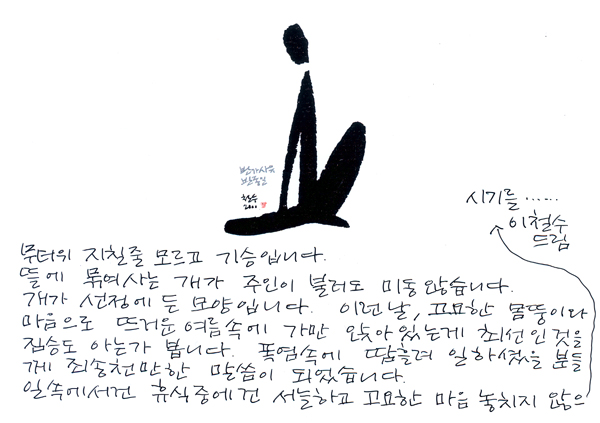 철수
2000
무더위 지칠줄 모르고 기승입니다.
뜰에 묶여사는 개가 주인이 불러도 미동않습니다.
개가 선정에 든 모양입니다. 이런날, 고요한 몸뚱이와
마음으로 뜨거운 여름속에 가만 앉아있는게 최선인것을
짐승도 아는가 봅니다. 폭염속에 땀흘려 일하셨을 분들
께 죄송천만한 말씀이 되었습니다.
일속에서건 휴식중에건 서늘하고 고요한 마음 놓치지 않으
시기를......
이철수
드림